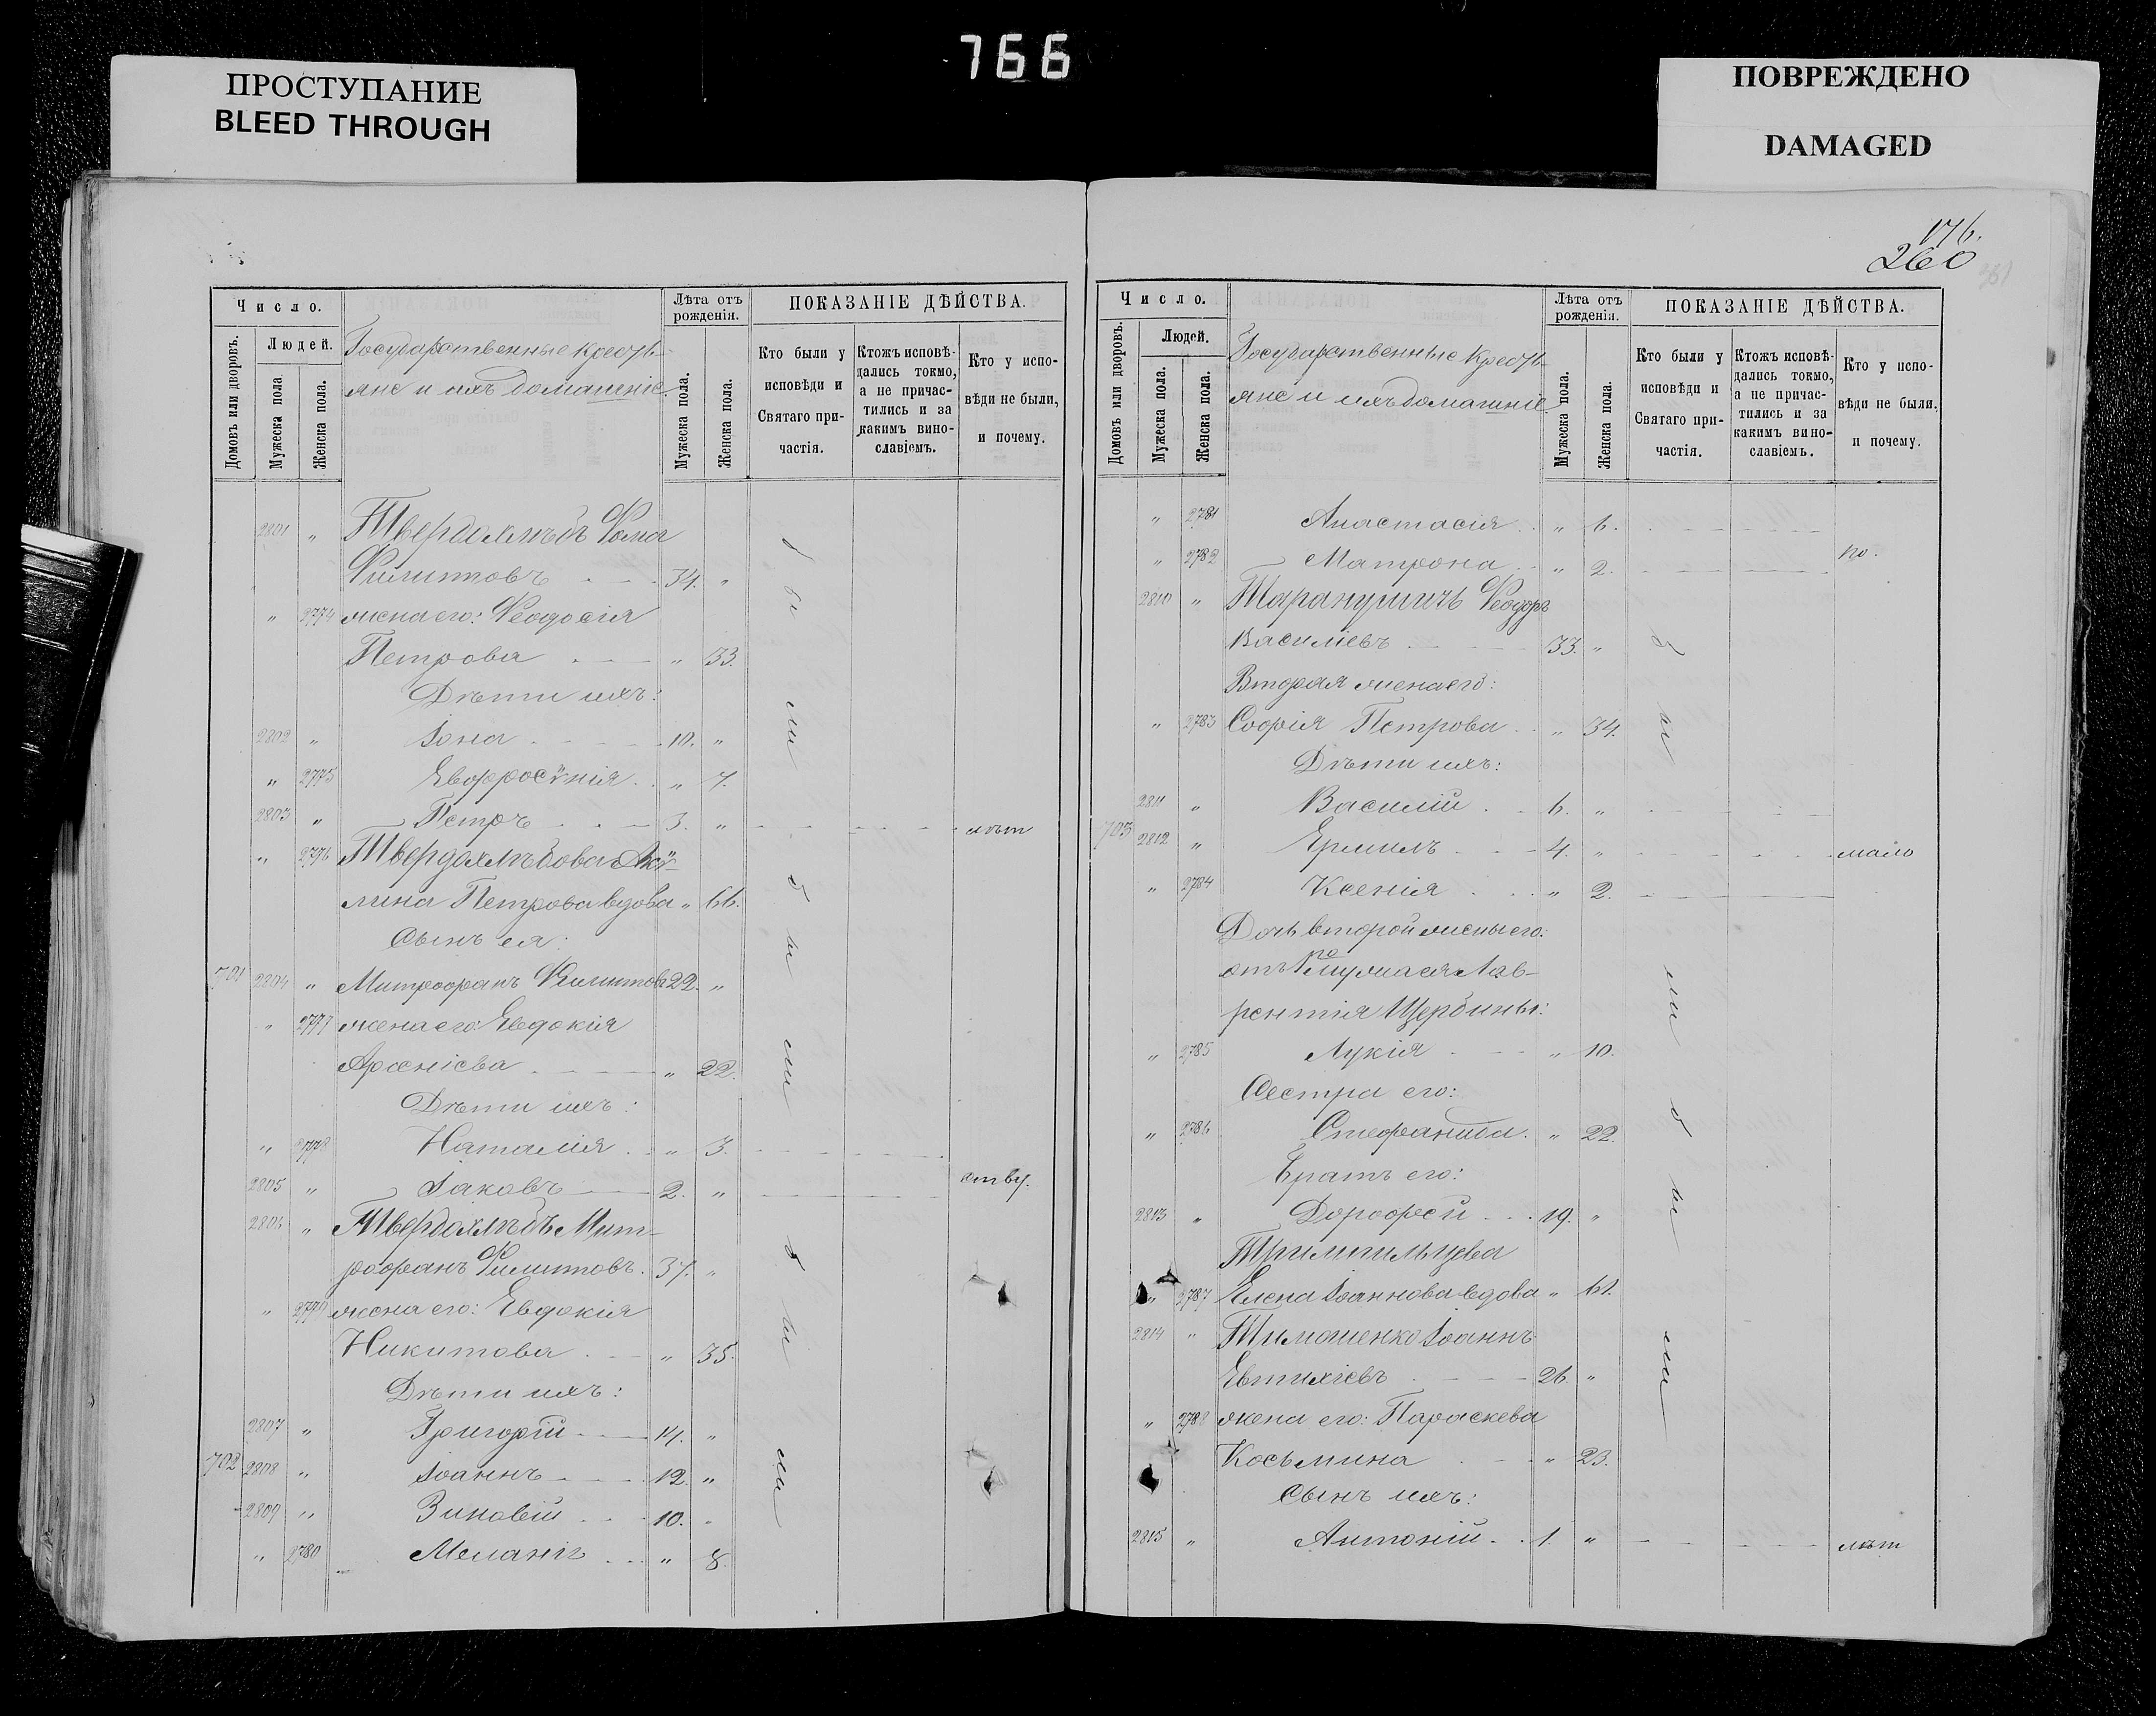 766
ПРОСТУПАНИЕ
BLEED THROUGH
ПОВРЕЖДЕНО
DAMAGED
Число.
Лѣта отъ рожденія.
ПОКАЗАНІЕ ДѢЙСТВА.
Домовъ или дворовъ.
Людей.
Мужеска пола
Женска пола.
Государственные крестьяне и ихъ домашніе.
Мужеска пола.
Женска пола.
Кто были у исповѣди и Святаго причастія.
Ктожъ исповѣдались токмо, а не причастились и за какимъ винославіемъ.
Кто у исповѣди не были, и почему.
2801 " Твердохлѣбъ Ѳома
Филипповъ 34. "
" 2774 жена его: Ѳеодосія
Петрова " 33.
Дѣти ихъ:
2802 " Іона 10. "
" 2775 Евфросѵнія " 7.
2803 " Петръ 3. " лѣт
" 2776 Твердохлѣбова Аку-
лина Петрова вдова " 66.
Сынъ ея:
701 2804 " Митрофанъ Филиппов 22. "
" 2777 жена его: Евдокія
Арсеніева " 22.
Дѣти ихъ:
" 2778 Наталія " 3.
2805 " Іаковъ 2. "
2806 " Твердохлѣбъ Мит-
рофанъ Филипповъ. 37. "
" 2779 жена его: Евдокія
Никитова " 35.
Дѣти ихъ:
2807 " Григорій 14. "
702 2808 " Іоаннъ 12. "
2809 " Зиновій 10. "
" 2780 Меланія " 8.
были были были
176.
260
Число.
Лѣта отъ рожденія.
ПОКАЗАНІЕ ДѢЙСТВА.
Домовъ или дворовъ.
Людей.
Мужеска пола.
Женска пола.
Государственные крестьяне и ихъ домашніе
Мужеска пола.
Женска пола.
Кто были у исповѣди и Святаго причастія.
Ктожъ исповѣдались токмо, а не причастились и за какимъ винославіемъ.
Кто у исповѣди не были, и почему.
" 2781 Анастасія " 6.
" 2782 Матрона " 2. по.
2810 " Таранушичъ Ѳеодоръ
Василіевъ 33. "
Вторая жена его:
" 2783 Софія Петрова " 34.
Дѣти ихъ:
2811 " Василій 6. "
703 2812 " Ермилъ 4. " мало
" 2784 Ксенія " 2.
Дочь второй жены его:
отъ перваго мужа ея Лав-
рентія Щербины:
" 2785 Лукія " 10.
Сестра его:
" 2786 Стефанида. " 22.
Братъ его:
2813 " Дорофей 19. "
" 2787 Елена Іоаннова вдова " 61.
2814 " Тимошенко Іоаннъ
Евтихіевъ 26. "
" 2788 жена его: Параскева
Косьмина " 23.
Сынъ ихъ:
2815 " Антоній 1. " лѣт
были были